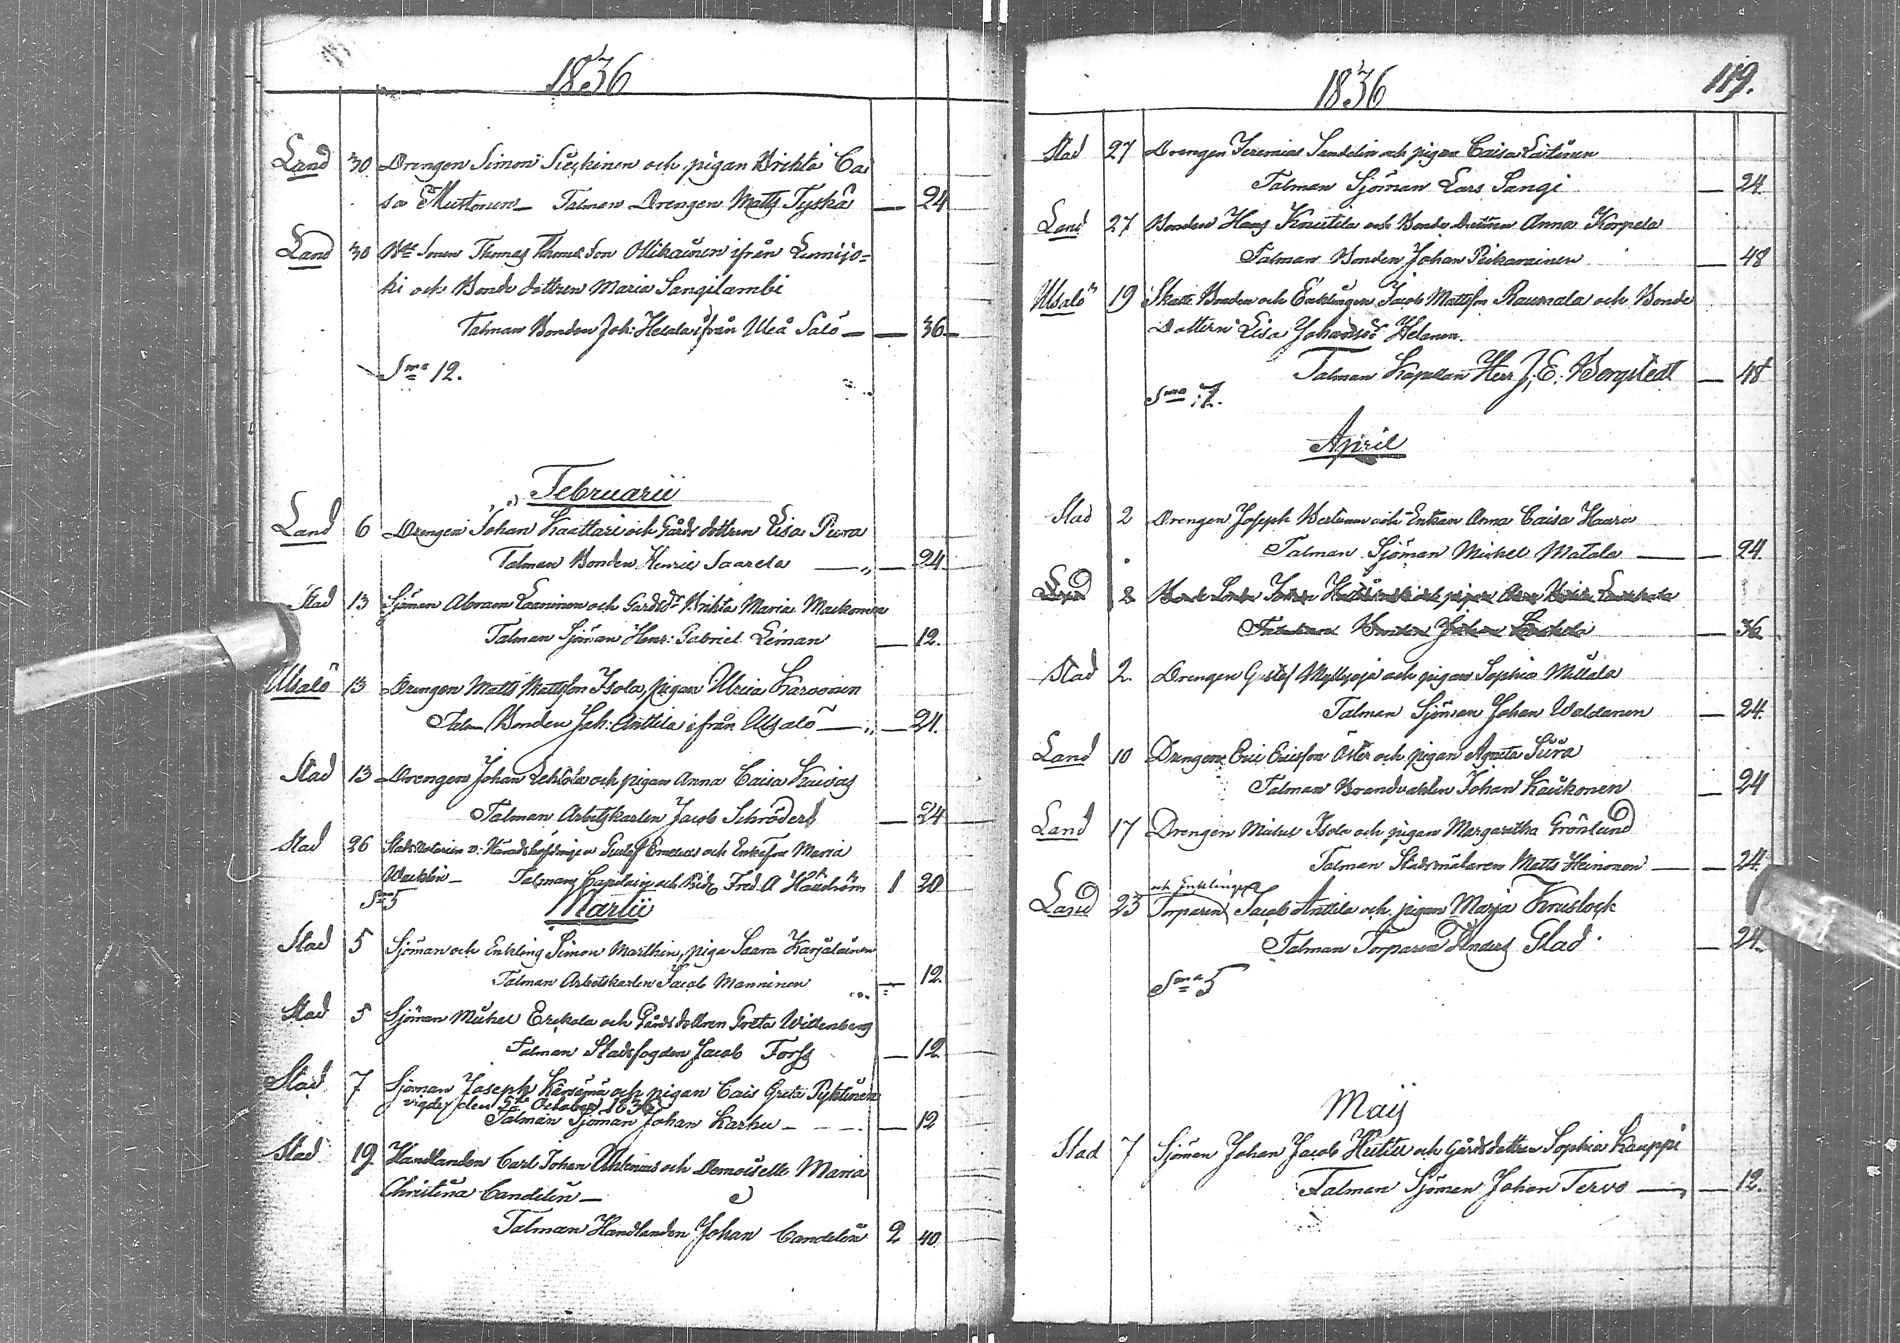 1836
Land 30 Drengen Simon Sieskinen och pigan Brihta Cai
sa Mustonen Talman Drengen Matts Tyskä — 24
Land 30 Bde Sonen Thomas Thomæson Ollikainen ifrån Lumijo=
ki och Bonde dottren Maria Sangilambi
Talman Bonden Joh: Helala ifrån Uleå Salo — 36
Sma 12.
Februarii
Land 6 Drengen Johan Kaattari och Gårds dottren Lisa Piura
Talman Bonden Henric Saarela — " — 24
Stad 13 Sjöman Abram Laurinen och Gårdsdr Brihta Maria Markonen
Talman Sjöman Henr: Gabriel Leman — 12.
Ulsalo 13 Drengen Matts Mattsson Isola, pigan Ulrica Karvonen
Talm Bonden Joh: Anttila ifrån Ulsalo — " — 24.
Stad 13 Drengen Johan Lehtola och pigan Anna Caisa Kuivas
Talman Arbetskarlen Jacob Schröder — 24
Stad 26 Stads Notarien v: Häradshöfdingen Gustaf Emeleus och Enkefru Maria
Wacklin — Talman Capitaine och Ridd. Fred. A 1 20
Sma 5
Martii
Stad 5 Sjöman och Enkling Simon Marthin, piga Saara Karjalainen
Talman Arbetskarlen Jacob Manninen — 12.
Stad 5 Sjöman Michel Erckola och Gårds dottren Greta Wittenberg
Talman Stadsfogden Jacob Forss — 12
Stad 7 Sjöman Joseph och pigan Cais Greta Pyktinen
vigde den 5te October 1836
Talman Sjöman Johan Karhu — 12
Stad 19 Handlanden Carl Johan och Demoiselle Maria
Christina Candelin —
Talman Handlanden Johan Candelin 2 40
1836 119.
Stad 27 Drengen Jeremias Sandelin och pigan Caisa Laitinen
Talman Sjöman Lars Sangi — 24.
Land 27 Bonden Hans Knutila och Bonde Dottren Anna Korpela
Talman Bonden Johan Pikarainen — 48
Ulsalo 19 Skatte Bonden och Enklingen Jacob Mattsson Raumala och Bonde
Dottern Lisa Johansdr Helanen.
Talman Kapellan Herr J. E. Bergstedt — 48
Sma 7.
April
Stad 2 Drengen Joseph och Enkan Anna Caisa Haara
Talman Sjöman Michel Matala — 24.
Land 2
Bonden Johan — 36
Stad 2. Drengen Gustaf Myllyoja och pigan Sophia Mattala
Talman Sjöman Johan Waldanen — 24.
Land 10 Drengen Eric Ericsson Öster och pigan Agneta Sura
Talman Brandvakten Johan Kaukonen — 24
Land 17 Drengen Michel Isola och pigan Margaretha Grönlund
Talman Stadsmålaren Matts Heinonen — 24.
och Enklingen
Land 23 Torparen Jacob Anttila och pigan Marja Kruslock
Talman Torparen Anders Glad. — 24.
Sma 5
Maij
Stad 7 Sjöman Johan Jacob och Gårdsdottren Sophia Kauppi
Talman Sjöman Johan Tervo — 12.